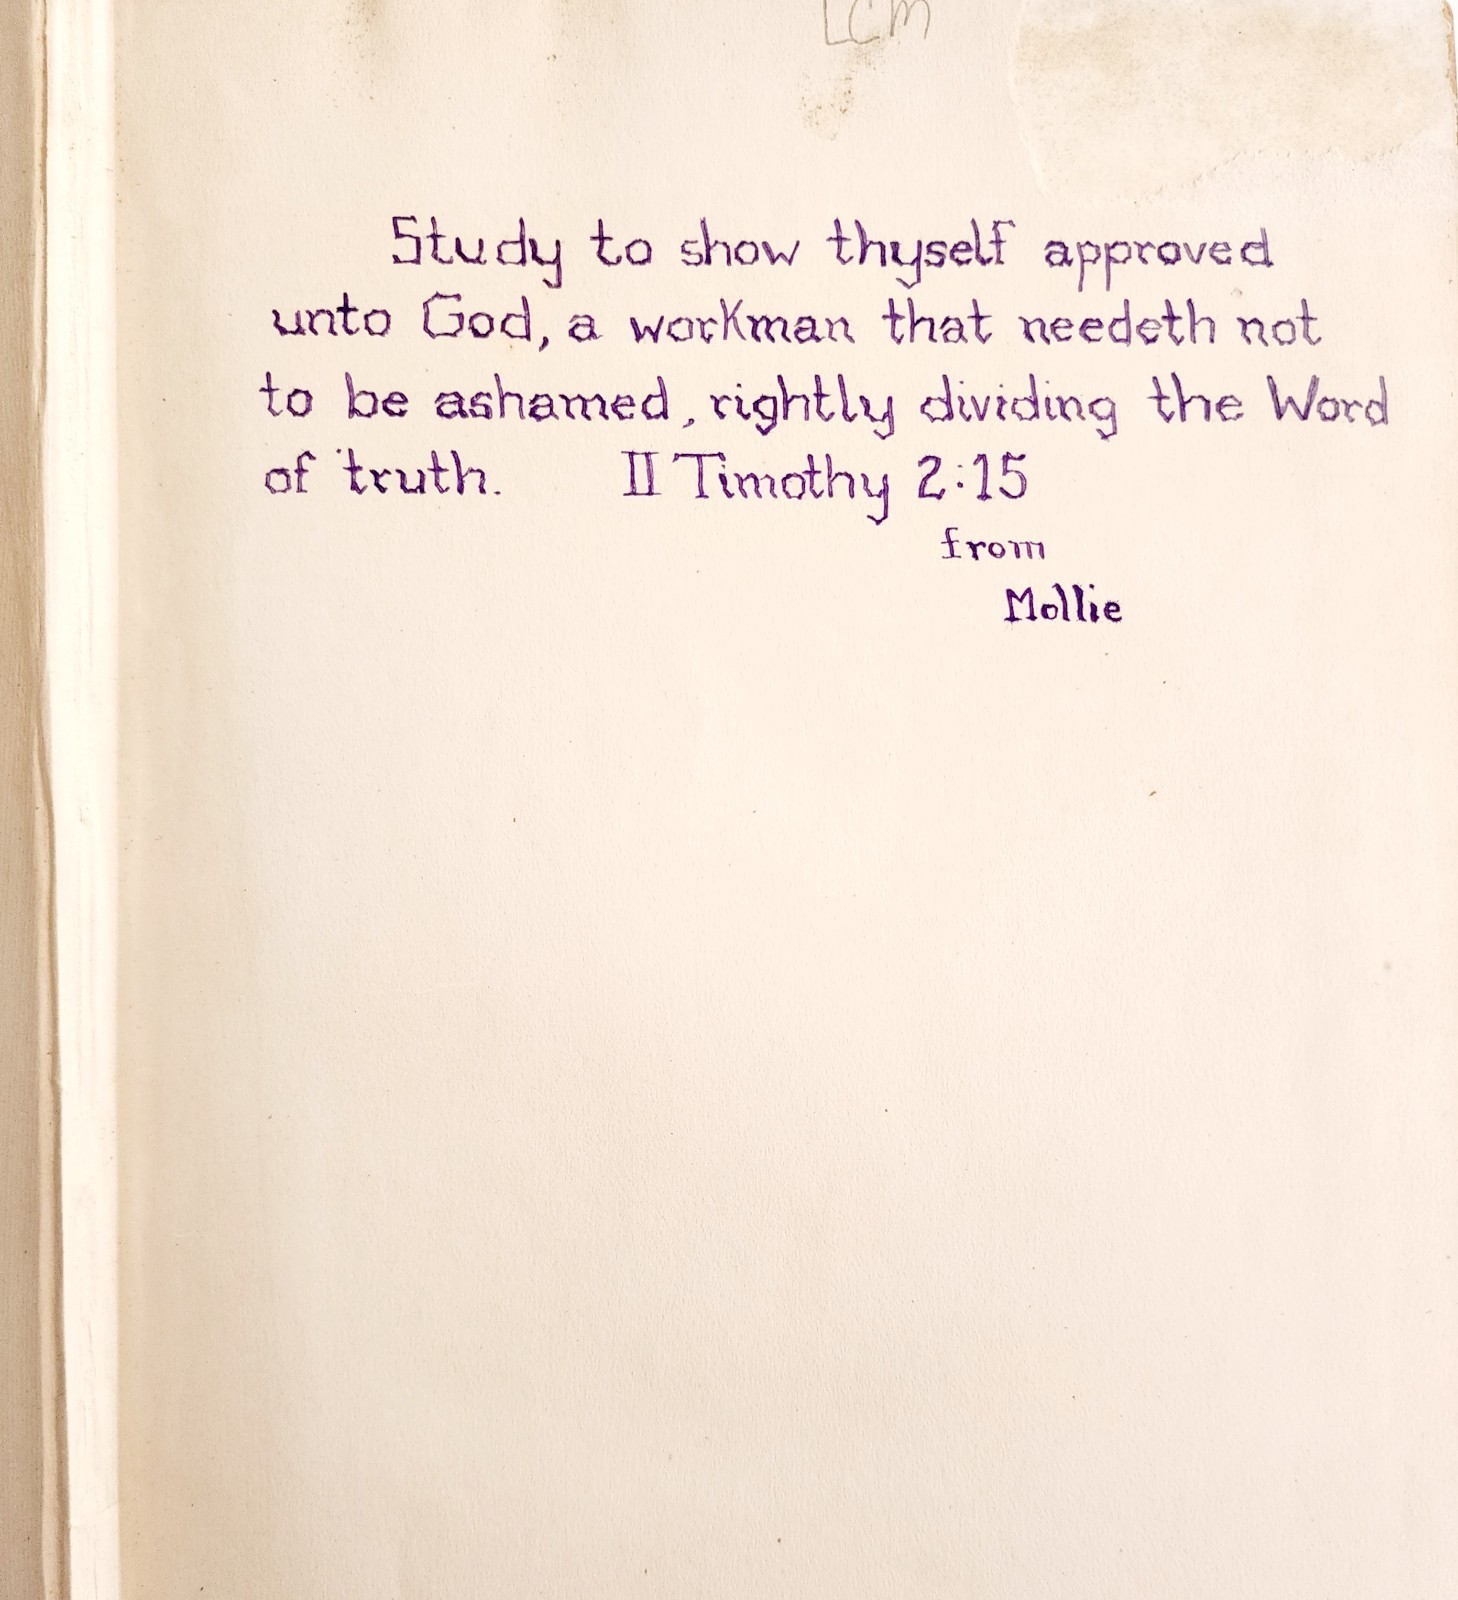 LCM
Study to show thyself approved
unto God, a workman that needeth not
to be ashamed, rightly dividing the Word
of truth. II Timothy 2:15
from
Mollie